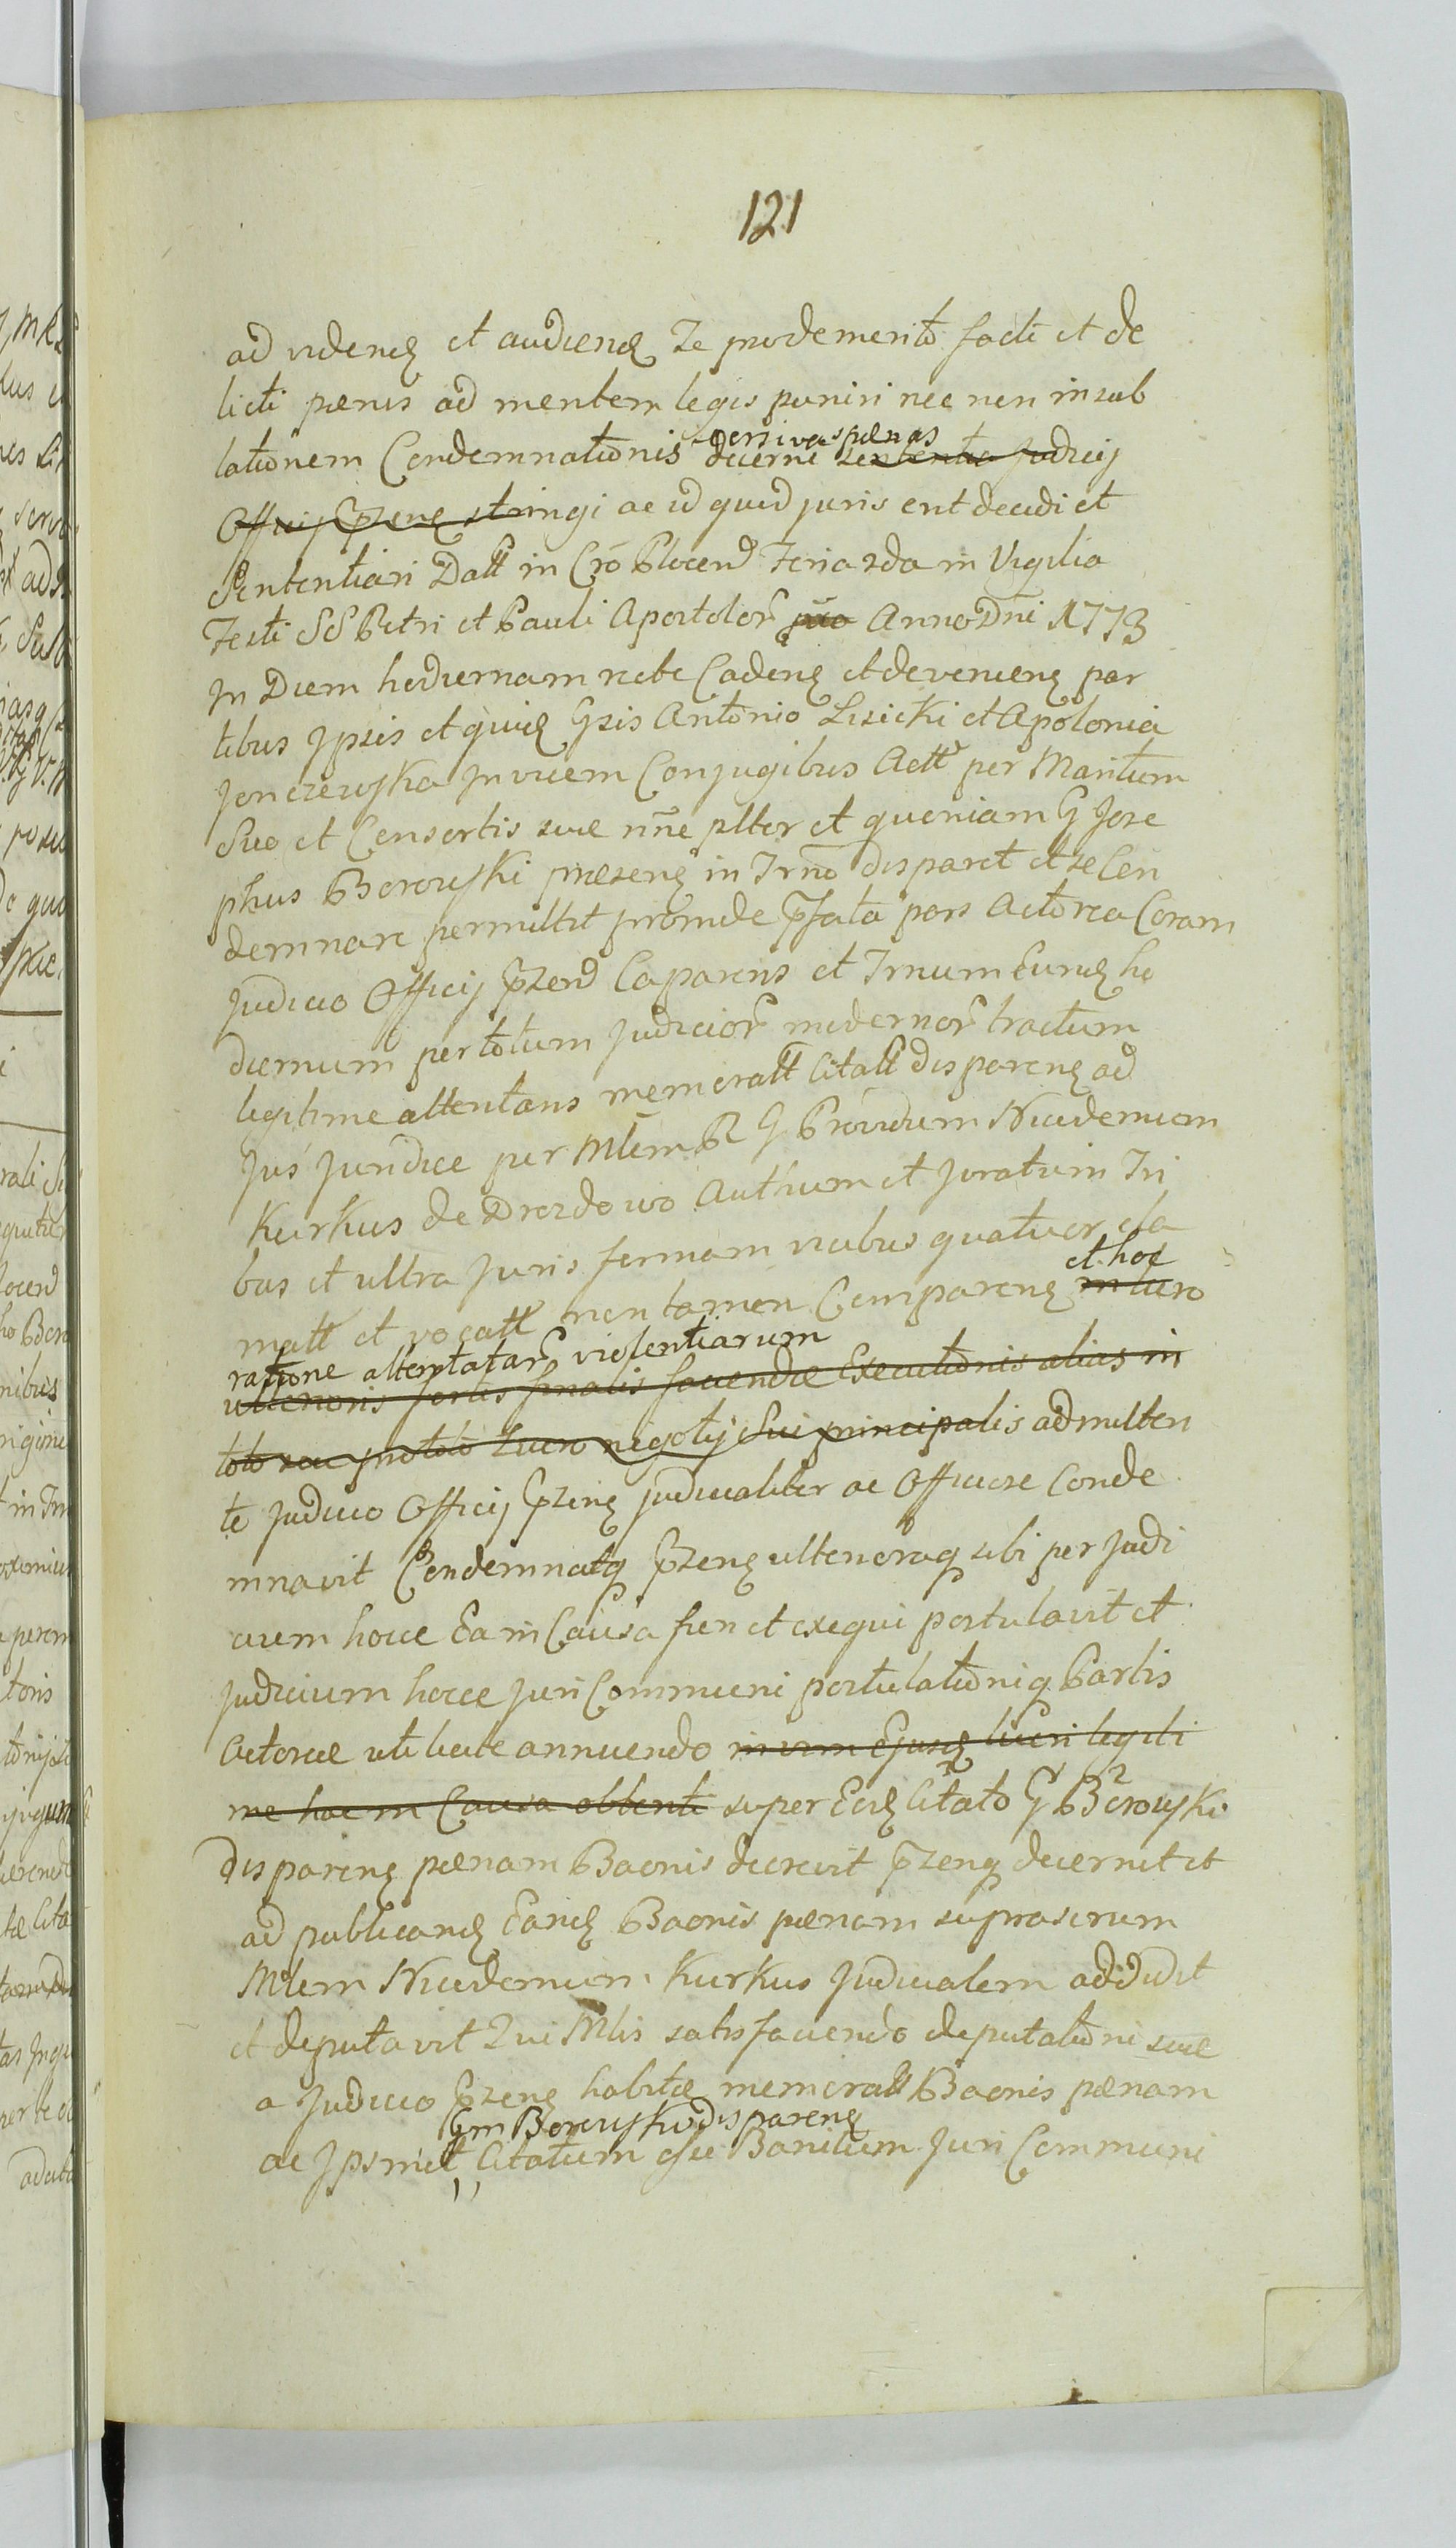 121
ad videnđ et audienđ se pro demerito facti et de
licti pœnis ad mentem legis puniri nec non in sub
lationem Condemnationis persivas pœnas decerni sententia Judicij
Officij Pzenđ stringi ac id quid juris erit decidi et
Sententiari Datt in Cro Plocenđ Feria 2da in Vigilia
Festi SS Petri et Pauli Apostolor Anno Dni 1773
In Diem hodiernam recte Cadenđ et devenienđ par
tibus Ipsis et quidē Gsis Antonio Lisicki et Apolonia
Jonczewska Invicem Conjugibus Actt per Maritum
Suo et Consortis suæ nne pltor et quoniam G Jose
phus Borowski præsenđ in Trno disparet et se Con
demnare permittit proinde Pfata pars Actorea Coram
Judicio Officij Pzenđ Caparens et Trnum Eundē ho
diernum per totum Judicior modernor tractum
legitime attentans memoratt Citatt disparenđ ad
Jus Juridice per Mlem R G Providum Nicodemum
Kurkus de Drozdowo Authum et Juratum Tri
bus et ultra Juris formam vicibus quatuor cla
matt et vocatt non tamen Comparenđ et hoc in lucro
ratione attentatar violentiarum
ulterioris fortis finalis faciendæ Executionis alias in
toto seu prototo lucro negotij Sui principalis admitten
te Judicio Officij Pzenđ Judicialiter ac Officiose Conde
mnavit Condemnatq Pzenđ ulterioraq sibi per Judi
cium hocce Ea in Causa fieri et exequi postulavit et
Judicium hocce Juri Communi postulationiq Partis
Actoreæ uti licite annuendo in vim Ejusdē lucri legiti
me hac in Causa obtenti super Eodē Citato G Borowski
disparenđ pœnam Baonis decrevit Pzenq decernit et
ad publicandē Eandē Baonis pœnam suprascrum
Mlem Nicodemum Kurkus Judicialem addidit
et deputavit Qui Mlis satisfaciendo deputationi suæ
a Judicio Pzenđ habitæ memoratt Baonis pœnam
Gm Borowski disparenđ
ac Ipsmet Citatum esse Banitum Juri Communi